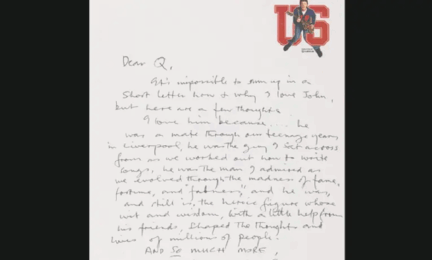 US
Dear Q,
It's impossible to sum up in a
short letter how & why I love John,
but here are a few thoughts.
I love him because ... he
was a mate through our teenage years
in Liverpool, he was the guy I sat across
from as we worked out how to write
songs, he was the man I admired as
we evolved through the madness of fame,
fortune, and "fabness," and he was,
and still is, the heroic figure whose
wit and wisdom, with a little help from
his friends, shaped the thoughts and
lives of millions of people.
AND SO MUCH MORE,